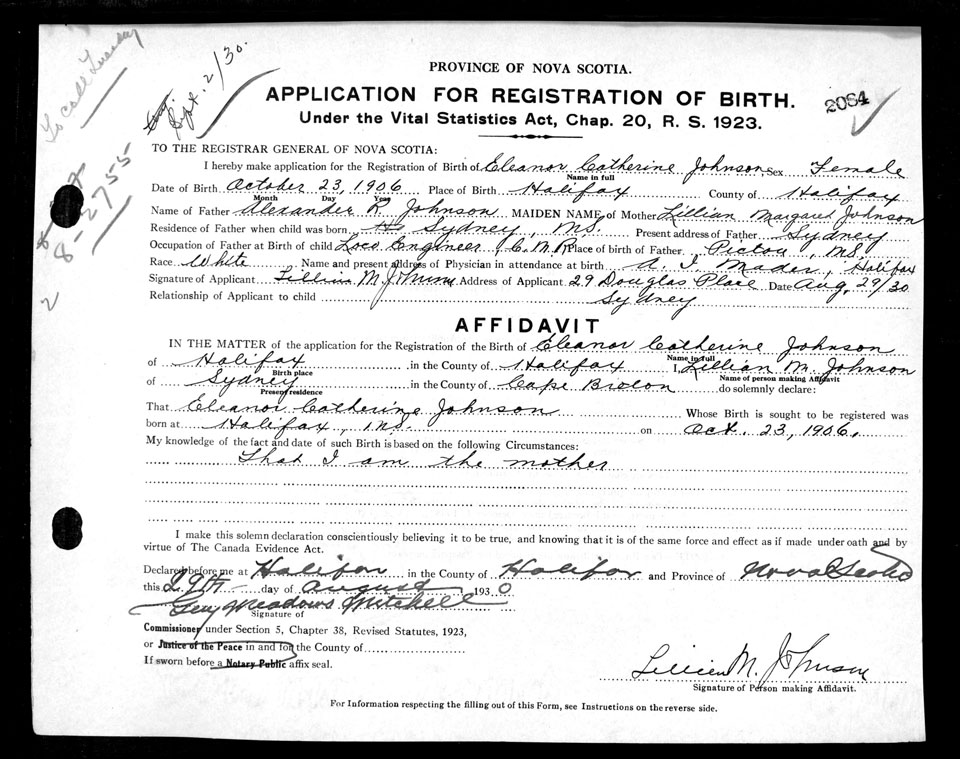 To call Tuesday
Sept. 2/30.
8-2755
2
PROVINCE OF NOVA SCOTIA.
APPLICATION FOR REGISTRATION OF BIRTH.
2064
Under the Vital Statistics Act, Chap. 20, R. S. 1923.
TO THE REGISTRAR GENERAL OF NOVA SCOTIA:
I hereby make application for the Registration of Birth of Eleanor Catherine Johnson Sex Female
Name in full
Date of Birth October 23, 1906 Place of Birth Halifax County of Halifax
Month Day Year
Name of Father Alexander R. Johnson MAIDEN NAME of Mother Lillian Margaret Johnson
Residence of Father when child was born, Sydney, N.S. Present address of Father Sydney
Occupation of Father at Birth of child Loco Engineer, C.N.R. Place of birth of Father Pictou, N.S.
Race White Name and present address of Physician in attendance at birth A. I. Mader, Halifax
Signature of Applicant Lillian M. Johnson Address of Applicant 29 Douglas Place Date Aug, 29/30
Relationship of Applicant to child Sydney
AFFIDAVIT
IN THE MATTER of the application for the Registration of the Birth of Eleanor Catherine Johnson
Name in full
of Halifax in the County of Halifax I, Lillian M. Johnson
Birth place Name of person making Affidavit
of Sydney in the County of Cape Breton do solemnly declare:
Present residence
That Eleanor Catherine Johnson Whose Birth is sought to be registered was
born at Halifax, N.S. on Oct. 23, 1906.
My knowledge of the fact and date of such Birth is based on the following Circumstances:
That I am the mother
I make this solemn declaration conscientiously believing it to be true, and knowing that it is of the same force and effect as if made under oath and by
virtue of The Canada Evidence Act.
Declared before me at Halifax in the County of Halifax and Province of Nova Scotia
this 29th day of August 1930
Meadows Mitchell
Signature of
Commissioner under Section 5, Chapter 38, Revised Statutes, 1923,
or Justice of the Peace in and for the County of
If sworn before a Notary Public affix seal.
Lillian M. Johnson
Signature of Person making Affidavit.
For Information respecting the filling out of this Form, see Instructions on the reverse side.